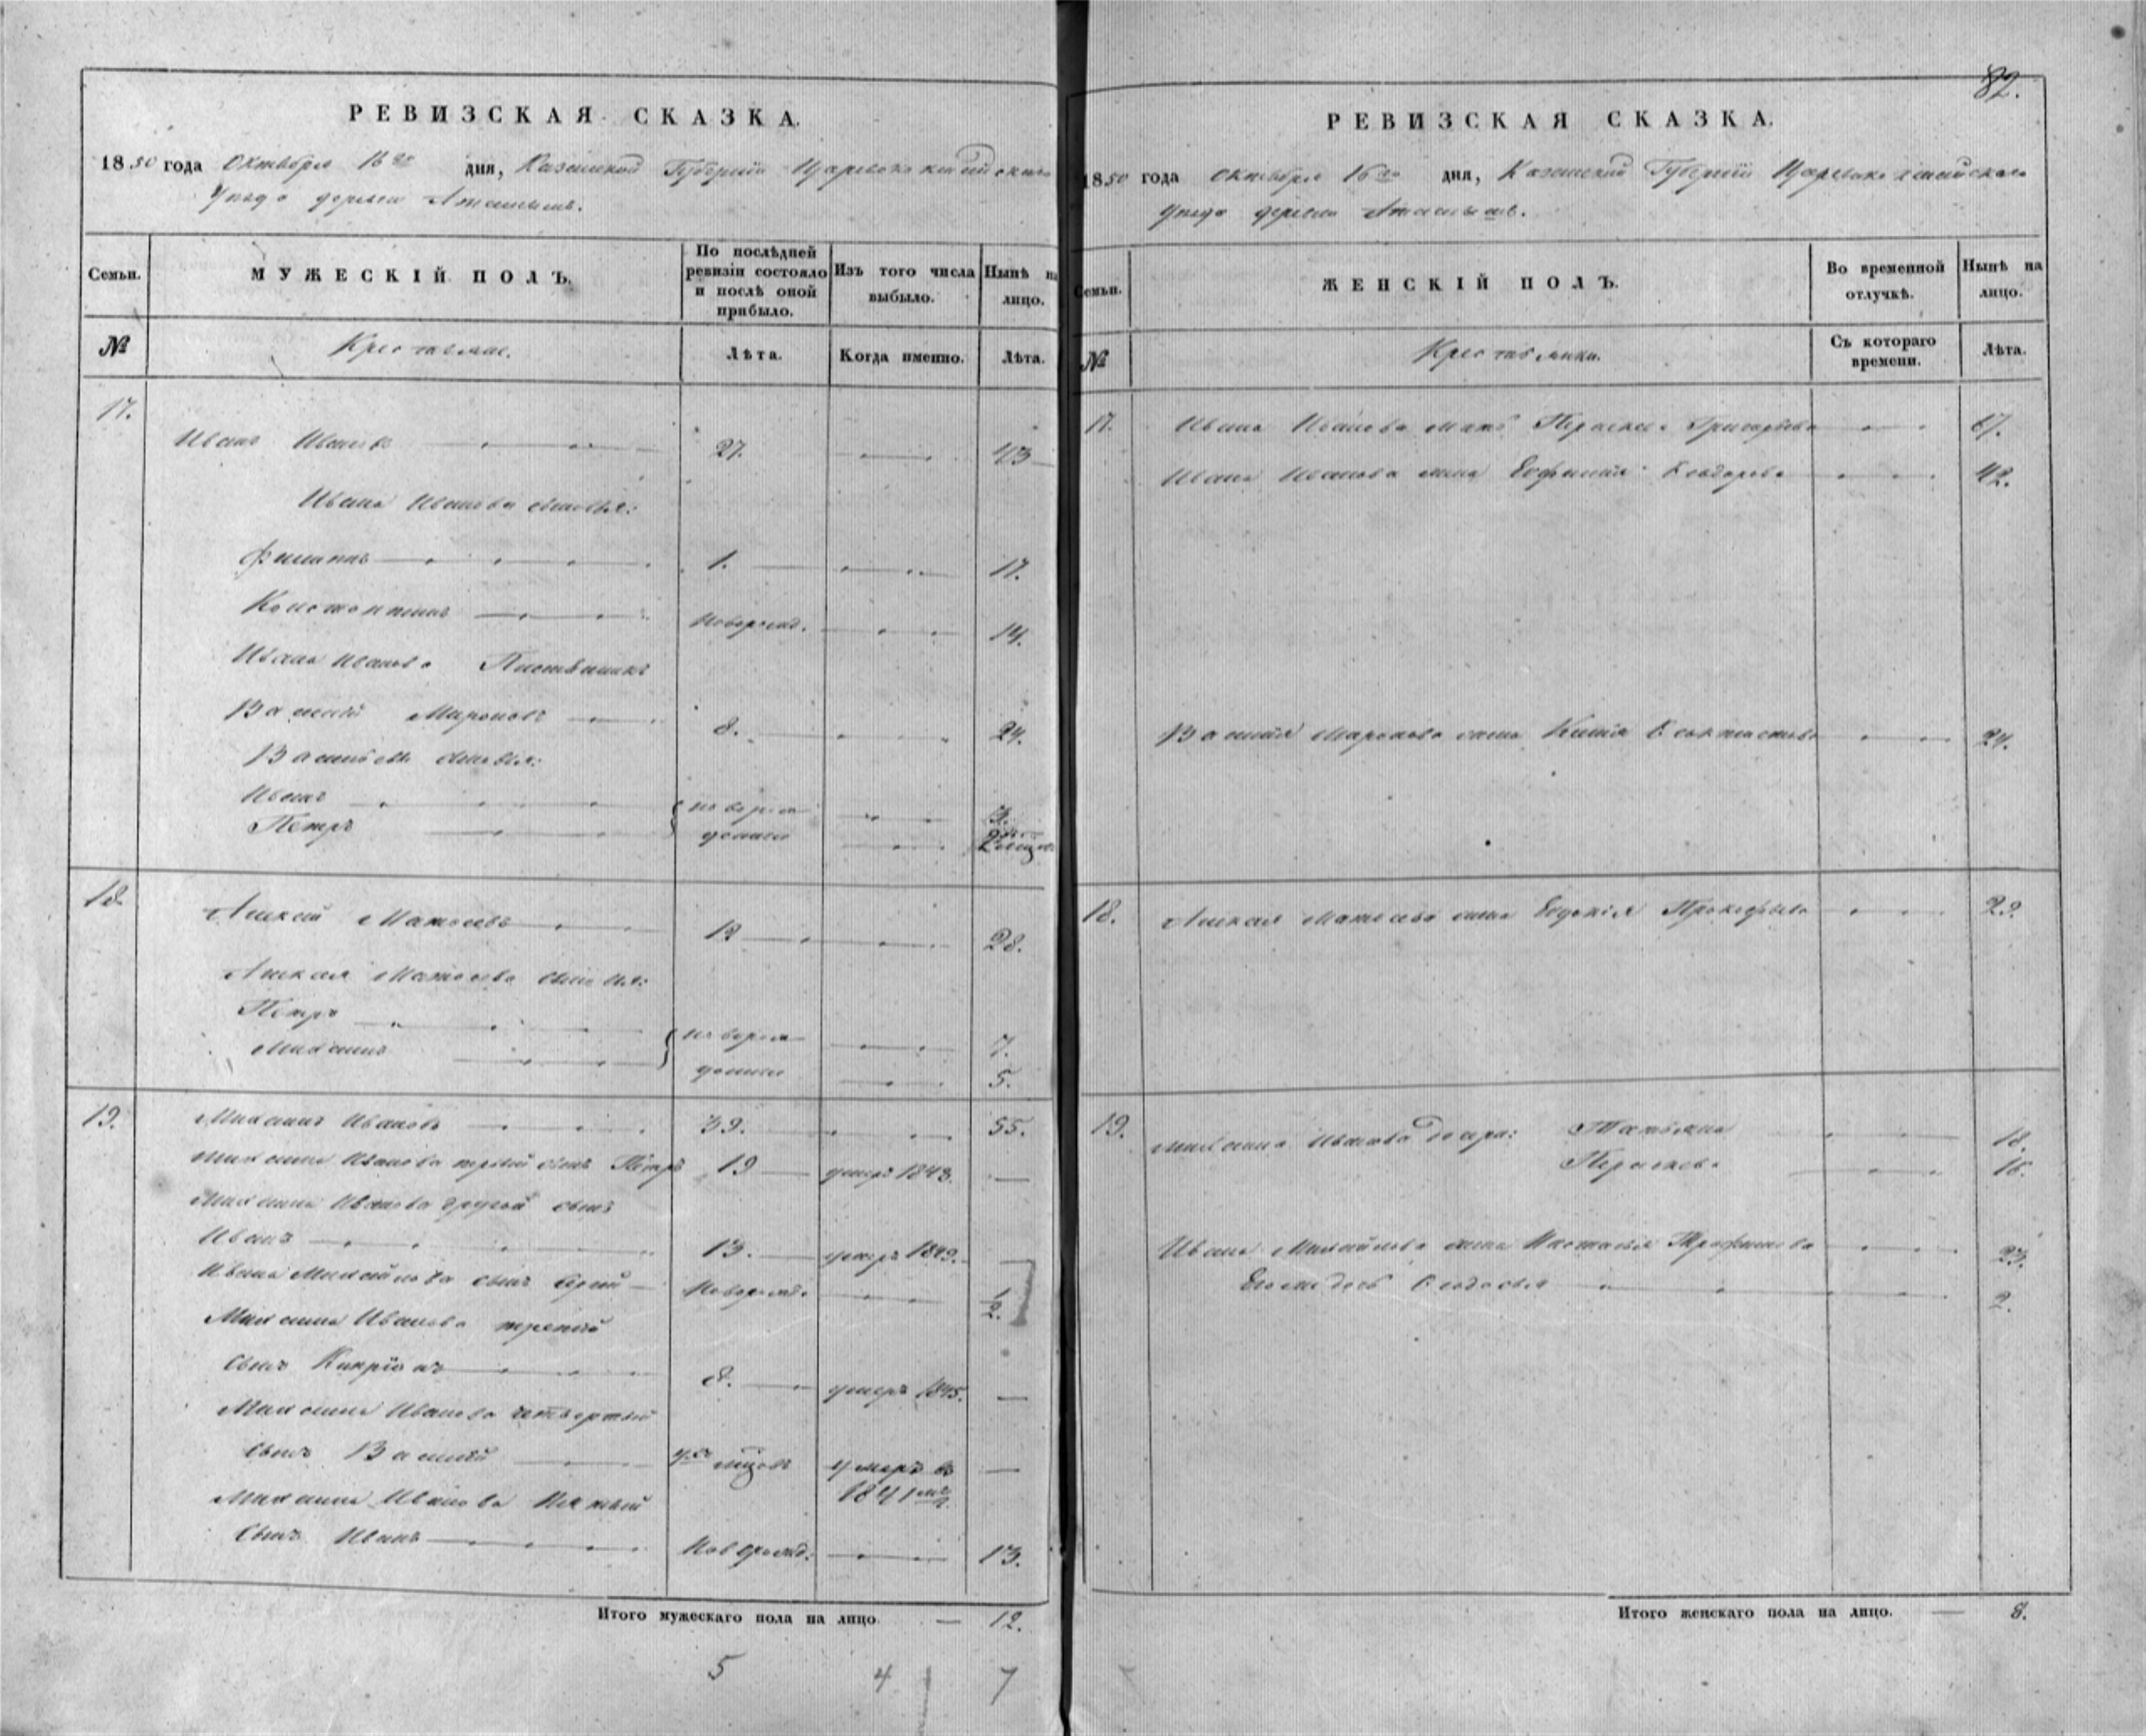 РЕВИЗСКАЯ СКАЗКА.
1850 года Октября 16го дня, Казанской Губерніи Царевококшайскаго
Уезда деревни
Семьи.
МУЖЕСКІЙ ПОЛЪ.
По послѣдней ревизіи состояло и послѣ оной прибыло.
Изъ того числа выбыло.
Нынѣ на лицо.
№
Крестьяне.
Лѣта.
Когда именно.
Лѣта.
17.
Иванъ Ивановъ 27. 43
Ивана Иванова сыновья:
Филиппъ 1. 17.
Константинъ новорожд. 14.
Ивана Иванова
Василій Мироновъ 8. 24.
Васильевы сыновья:
Иванъ новоро 3.
Петръ жденны
18.
Алексей Матвеевъ 12 28.
Алексея Матвеева сыновья:
Петръ новоро 7.
Михаилъ жденны 5.
19.
Михаилъ Ивановъ 39. 55.
Михаила Иванова первый сынъ Петръ 19 умеръ 1843.
Михаила Иванова другой сынъ
Иванъ 13. умеръ 1849.
Ивана Михайлова сынъ новорожд. 1/2.
Михаила Иванова третій
сынъ Кипріянъ 8. умеръ 1845.
Михаила Иванова четвертый
сынъ Василій умеръ въ
1841мъ
Михаила Иванова пятый
сынъ Иванъ новорожд. 13.
Итого мужескаго пола на лицо. — 12.
5 4 7
82.
РЕВИЗСКАЯ СКАЗКА.
1850 года Октября 16го дня, Казанской Губерніи Царевококшайскаго
Уезда деревни
Семьи.
ЖЕНСКІЙ ПОЛЪ.
Во временной отлучкѣ.
Нынѣ на лицо.
№
Крестьянки.
Съ котораго времени.
Лѣта.
17. Ивана Иванова мать Прасковья Григорьева 67.
Ивана Иванова жена Евфимія Феодорова 42.
Василія Миронова жена 24.
18. Алексея Матвеева жена Евдокія Прокофьева 29.
19. Михаила Иванова дочери: Татьяна 18.
16.
Ивана Михайлова жена Настасья Трофимова 23.
Его же дочь Феодосья 2.
Итого женскаго пола на лицо. — 8.